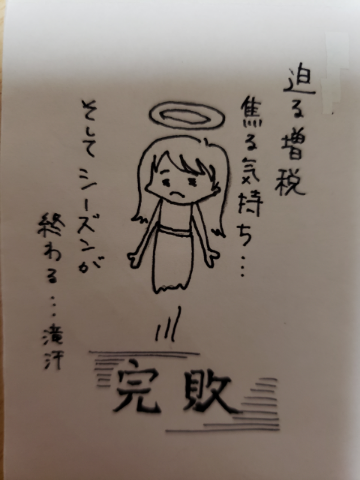 迫る増税
焦る気持ち…
そしてシーズンが
終わる…滝汗
完敗